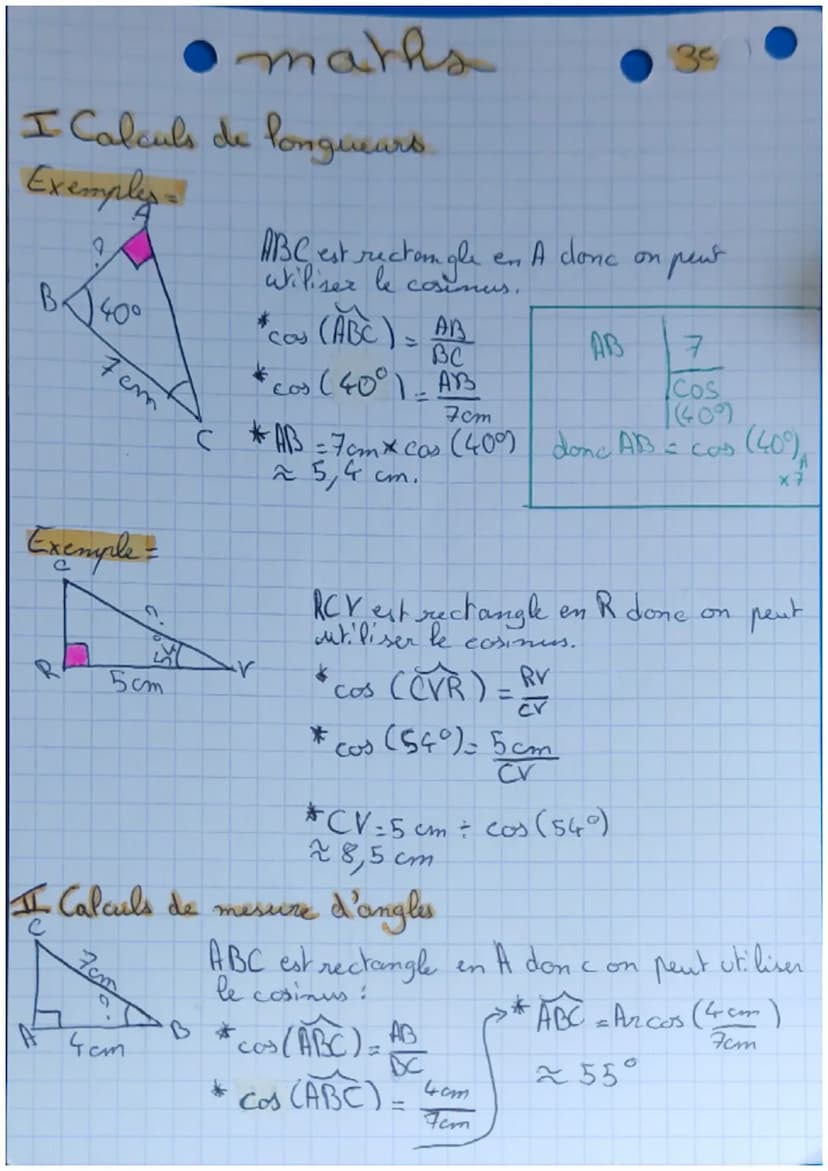 maths
3e
I Calculs de longueurs
Exemples=
A
?
B
40°
7cm
C
ABC est rectangle en A donc on peut
utiliser le cosinus.
*cos (ABC) = AB
BC
*cos (40°) = AB
7cm
*AB = 7cm x cos (40°)
≈ 5,4 cm.
AB
7
cos
(40°)
donc AB = cos (40°)
x7
Exemple=
C
?
54°
R
5cm
V
RCV est rectangle en R donc on peut
utiliser le cosinus.
*cos (CVR) = RV
CV
*cos (54°) = 5cm
CV
*CV = 5 cm ÷ cos (54°)
≈ 8,5 cm
II Calculs de mesure d'angles
C
7cm
?
A
4cm
B
ABC est rectangle en A donc on peut utiliser
le cosinus :
*cos (ABC) = AB
BC
*cos (ABC) = 4cm
7cm
* ABC = Arcos (4cm)
7cm
≈ 55°